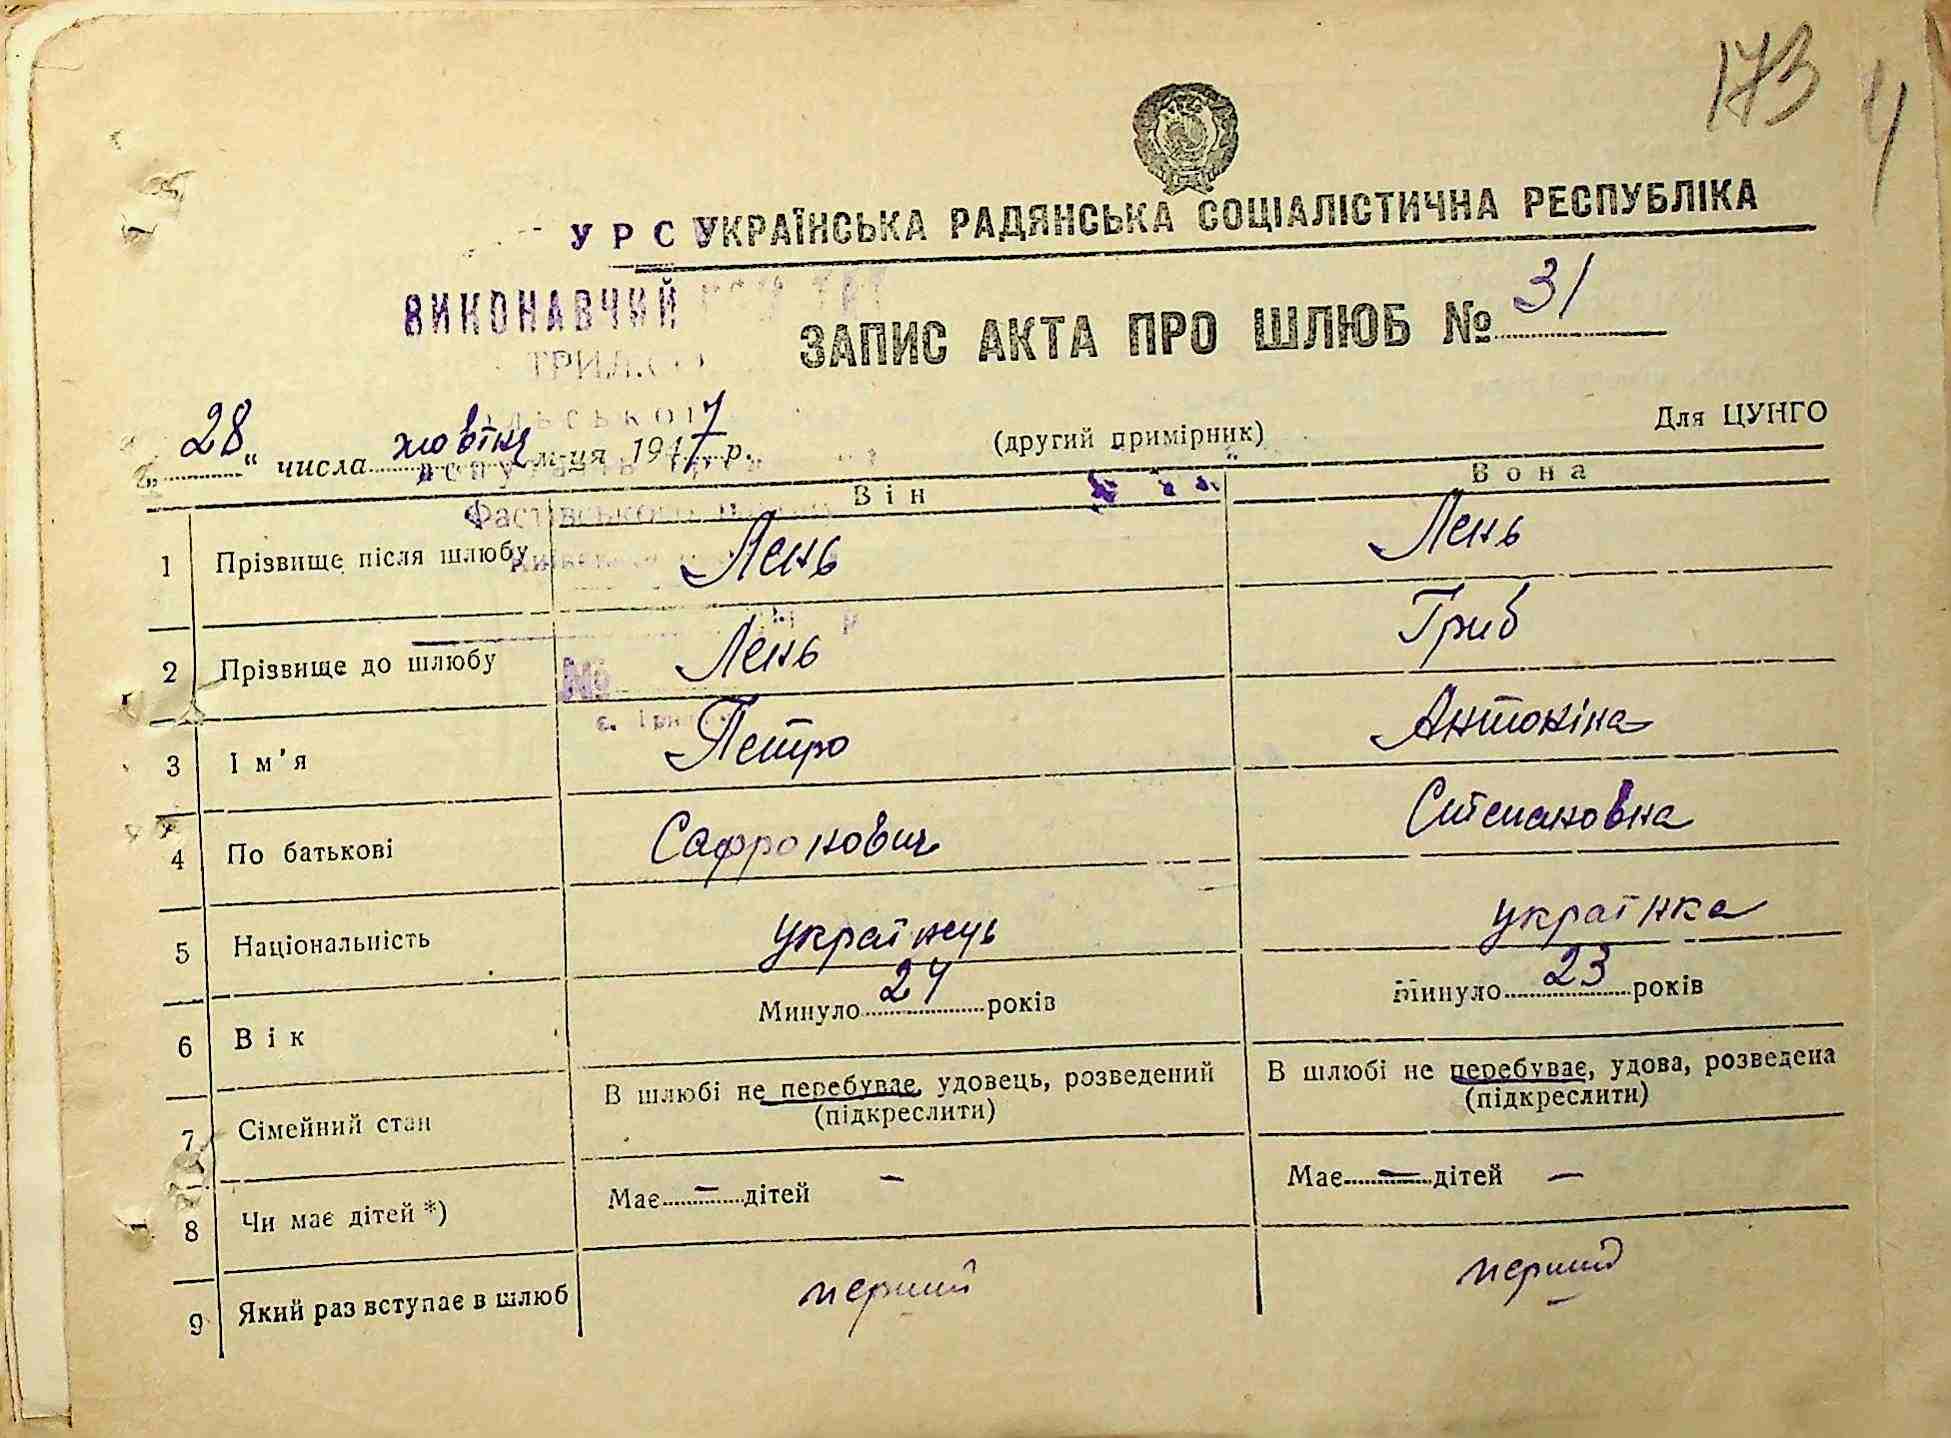 173
У Р С
УКРАЇНСЬКА РАДЯНСЬКА СОЦІАЛІСТИЧНА РЕСПУБЛІКА
ВИКОНАВЧИЙ
ЗАПИС АКТА ПРО ШЛЮБ № 31
„28“ числа жовтня м-ця 1947 р.
(другий примірник)
Для ЦУНГО
Він Вона
1 Прізвище після шлюбу Лень Лень
2 Прізвище до шлюбу Лень Гриб
3 Ім'я Петро Антоніна
4 По батькові Сафронович Степановна
5 Національність українець українка
6 Вік Минуло 24 років Минуло 23 років
7 Сімейний стан В шлюбі не перебуває, удовець, розведений (підкреслити) В шлюбі не перебуває, удова, розведена (підкреслити)
8 Чи має дітей *) Має — дітей — Має — дітей —
9 Який раз вступає в шлюб перший перший